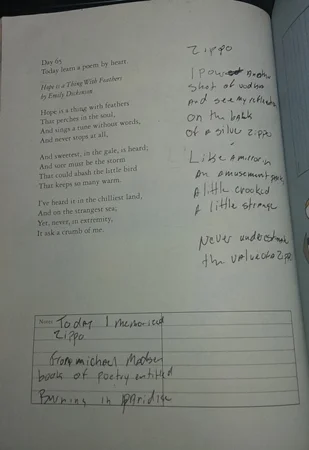 Day 65
Today learn a poem by heart.
Hope is a Thing With Feathers
by Emily Dickinson
Hope is a thing with feathers
That perches in the soul,
And sings a tune without words,
And never stops at all,
And sweetest, in the gale, is heard;
And sore must be the storm
That could abash the little bird
That keeps so many warm.
I've heard it in the chilliest land,
And on the strangest sea;
Yet, never, in extremity,
It ask a crumb of me.
Zippo
I pour another
shot of vodka
And see my reflection
on the back
of a silver Zippo
Like a mirror in
An amusement park
A little crooked
A little strange
Never underestimate
the value of a Zippo
Notes Today I memorized
Zippo
From michael Madsen
book of poetry entitled
Burning in paridise